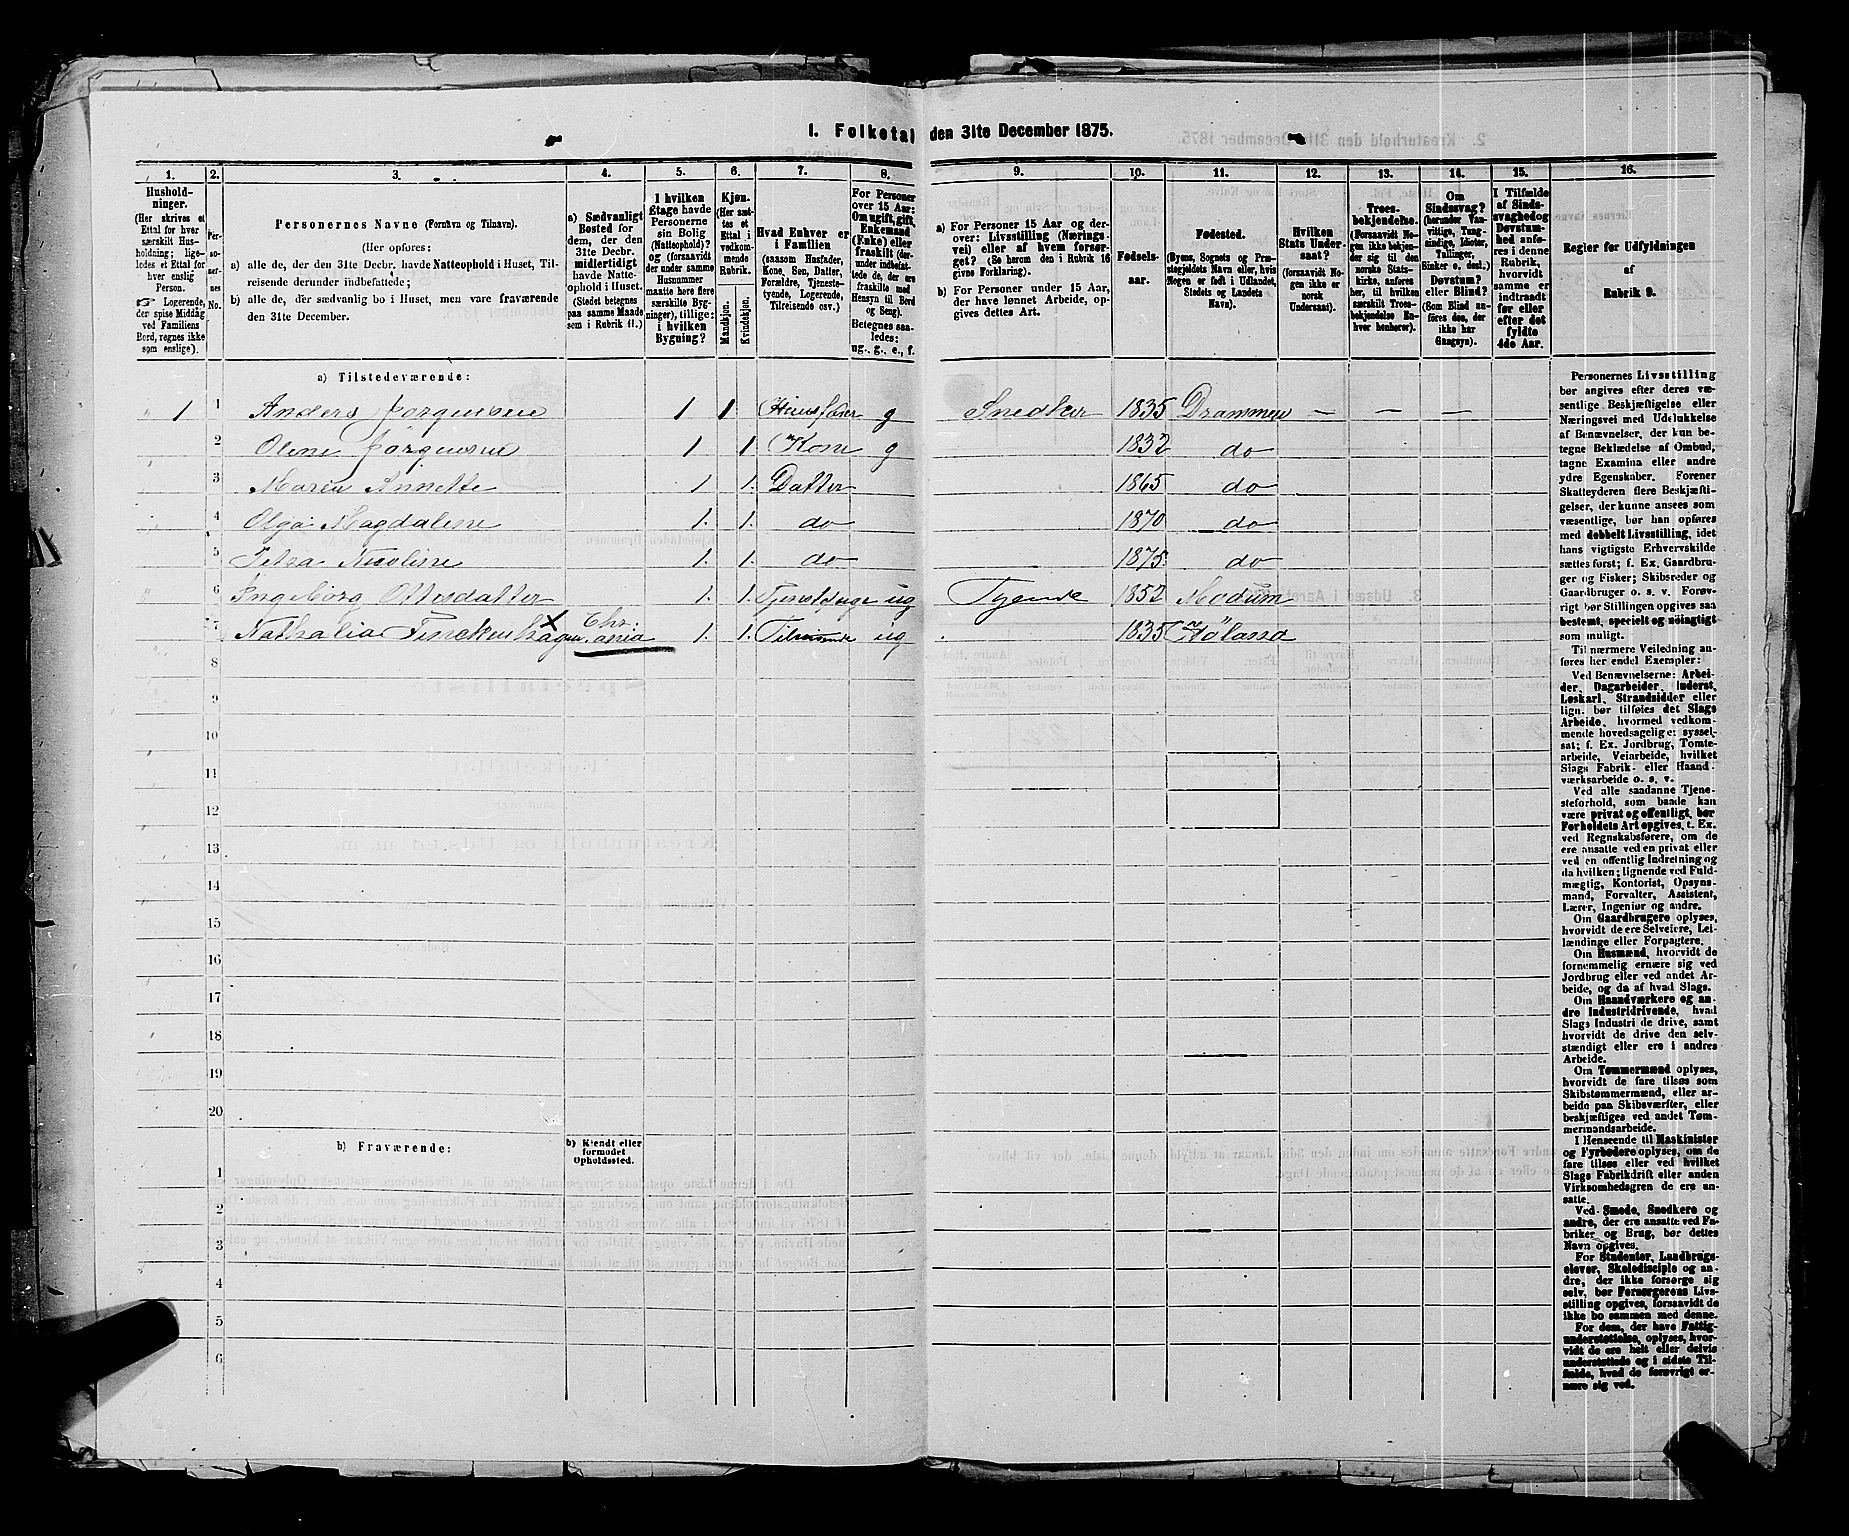 1. Folketal den 31te December 1875.
1. 2. 3. 4. 5. 6. 7. 8. 9. 10. 11. 12. 13. 14. 15. 16.
Hushold-
ninger.
(Her skrives et
Ettal for hver
særskilt Hus-
holdning; lige-
ledes et Ettal for
hver enslig
Person.
☞ Logerende,
der spise Middag
ved Familiens
Bord, regnes ikke
som enslige).
Per-
so-
ner-
nes
No.
Personernes Navne (Fornavn og Tilnavn).
(Her opføres:
a) alle de, der den 31te Decbr. havde Natteophold i Huset, Til-
reisende derunder indbefattede;
b) alle de, der sædvanlig bo i Huset, men vare fraværende
den 31te December.
a) Sædvanligt
Bosted for
dem, der den
31te Decbr.
midlertidigt
havde Natte-
ophold i Huset.
(Stedet betegnes
paa samme Maade
som i Rubrik 11.)
I hvilken
Etage havde
Personerne
sin Bolig
(Natteophold)?
og (forsaavidt
der under samme
Husnummer
maatte høre flere
særskilte Byg-
ninger), tillige:
i hvilken
Bygning?
Kjøn.
(Her sæt-
tes et
Ettal i
vedkom-
mende
Rubrik.
Mandkjøn.
Kvindekjøn.
Hvad Enhver er
i Familien
(saasom Husfader,
Kone, Søn, Datter,
Forældre, Tjeneste-
tyende, Logerende,
Tilreisende osv.)
For Personer
over 15 Aar:
Om ugift, gift,
Enkemand
(Enke) eller
fraskilt (der-
under indbefat-
tede de, der ere
fraskilte med
Hensyn til Bord
og Seng).
Betegnes saa-
ledes:
ug., g., e., f.
a) For Personer 15 Aar og der-
over: Livsstilling (Nærings-
vei) eller af hvem forsør-
get? (Se herom den i Rubrik 16
givne Forklaring).
b) For Personer under 15 Aar,
der have lønnet Arbeide, op-
gives dettes Art.
Fødsels-
aar.
Fødested.
(Byens, Sognets og Præ-
stegjeldets Navn eller, hvis
Nogen er født i Udlandet,
Stedets og Landets
Navn).
Hvilken
Stats Under-
saat?
(forsaavidt No-
gen ikke er
norsk
Undersaat).
Troes-
bekjendelse.
(Forsaavidt No-
gen ikke bekjen-
der sig til den
norske Stats-
kirke, anføres
her, til hvilken
særskilt Troes-
bekjendelse En-
hver henhører).
Om
Sindssvag?
(herunder Van-
vittige, Tung-
sindige, Idioter,
Tullinger,
Sinker o. desl.)
Døvstum?
eller Blind?
(Som Blind an-
føres den, der
ikke har
Gangsyn).
I Tilfælde
af Sinds-
svaghed og
Døvstum-
hed anfø-
res i denne
Rubrik,
hvorvidt
samme er
indtraadt
før eller
efter det
fyldte
4de Aar.
Regler for Udfyldningen
af
Rubrik 9.
a) Tilstedeværende:
1 1 Anders Jørgensen 1 1 Huusfader g Snedker 1835 Drammen — — —
2 Oline Jørgensen 1 1 Kone g 1832 do
3 Maren Annette 1 1. Datter 1865 do
4 Olga Magdalene 1. 1. do 1870 do
5 Petra Nicoline 1. 1. do 1875. do
6 Ingeborg Ottesdatter 1. 1. Tjenestpige ug Tyende 1852 Modum
7 Nathalia Finckenhagen Chr: ania 1. 1. ug 1835
8
9
10
11
12
13
14
15
16
17
18
19
20
b) Fraværende:
b) Kjendt eller
formodet
Opholdssted.
1
2
3
4
5
6
Personernes Livsstilling
bør angives efter deres væ-
sentlige Beskjæftigelse eller
Næringsvei med Udelukkelse
af Benævnelser, der kun be-
tegne Beklædelse af Ombud,
tagne Examina eller andre
ydre Egenskaber. Forener
Skatteyderen flere Beskjæfti-
gelser, der kunne ansees som
væsentlige, bør han opføres
med dobbelt Livsstilling, idet
hans vigtigste Erhvervskilde
sættes først; f. Ex. Gaardbru-
ger og Fisker; Skibsreder og
Gaardbruger o. s. v. Forøv-
rigt bør Stillingen opgives saa
bestemt, specielt og nøiagtigt
som muligt.
Til nærmere Veiledning an-
føres her endel Exempler:
Ved Benævnelserne: Arbei-
der, Dagarbeider, Inderst,
Løskarl, Strandsidder eller
lign. bør tilføies det Slags
Arbeide, hvormed vedkom-
mende hovedsagelig er syssel-
sat; f. Ex. Jordbrug, Tomte-
arbeide, Veiarbeide, hvilket
Slags Fabrik- eller Haand-
værksarbeide o. s. v.
Ved alle saadanne Tjene-
steforhold, som baade kan
være privat og offentligt, bør
Forholdets Art opgives, t. Ex.
ved Regnskabsførere, om de
ere ansatte ved en privat eller
ved en offentlig Indretning og
da hvilken; lignende ved Fuld-
mægtig, Kontorist, Opsyns-
mand, Forvalter, Assistent,
Lærer, Ingeniør og andre.
Om Gaardbrugere oplyses,
hvorvidt de ere Selveiere, Lei-
lændinge eller Forpagtere.
Om Husmænd, hvorvidt de
fornemmelig ernære sig ved
Jordbrug eller ved andet Ar-
beide, og da af hvad Slags.
Om Haandværkere og an-
dre Industridrivende, hvad
Slags Industri de drive, samt
hvorvidt de drive den selv-
stændigt eller ere i andres
Arbeide.
Om Tømmermænd oplyses,
hvorvidt de fare tilsøs som
Skibstømmermænd, eller ar-
beide paa Skibsværfter, eller
beskjæftiges ved andet Tøm-
mermandsarbeide.
I Henseende til Maskinister
og Fyrbødere oplyses, om de
fare tilsøs eller ved hvilket
Slags Fabrikdrift eller anden
Virksomhedsgren de ere an-
satte.
Ved Smede, Snedkere og
andre, der ere ansatte ved Fa-
briker og Brug, bør dettes
Navn opgives.
For Studenter, Landbrugs-
elever, Skoledisciple og an-
dre, der ikke forsørge sig
selv, bør Forsørgerens Livs-
stilling opgives, forsaavidt de
ikke bo sammen med denne.
For dem, der have Fattig-
understøttelse, oplyses, hvor-
vidt de ere helt eller delvis
understøttede og i sidste Til-
fælde, hvad de forøvrigt er-
nære sig ved.